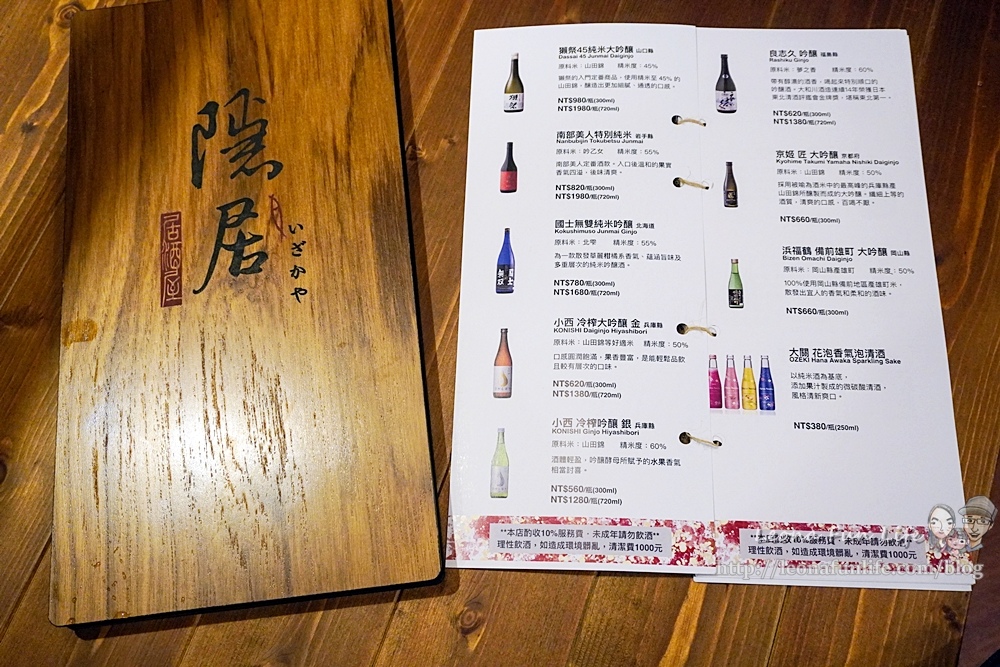 隱居
居酒屋
いざかや
獺祭45純米大吟釀 山口縣
Dassai 45 Junmai Daiginjo
原料米：山田錦 精米度：45%
獺祭的入門定番商品，使用精米至 45% 的
山田錦，釀造出更加細膩、通透的口感。
NT$980/瓶(300ml)
NT$1980/瓶(720ml)
南部美人特別純米 岩手縣
Nanbubijin Tokubetsu Junmai
原料米：吟乙女 精米度：55%
南部美人定番酒款，入口後溫和的果實
香氣四溢、後味清爽。
NT$820/瓶(300ml)
NT$1980/瓶(720ml)
國士無雙純米吟釀 北海道
Kokushimusou Junmai Ginjo
原料米：北雫 精米度：55%
為一款散發華麗柑橘系香氣、蘊涵旨味及
多重層次的純米吟釀酒。
NT$780/瓶(300ml)
NT$1680/瓶(720ml)
小西 冷榨大吟釀 金 兵庫縣
KONISHI Daiginjo Hiyashibori
原料米：山田錦等好適米 精米度：50%
口感圓潤飽滿，果香豐富，是能輕鬆品飲
且較有層次的口味。
NT$620/瓶(300ml)
NT$1380/瓶(720ml)
小西 冷榨吟釀 銀 兵庫縣
KONISHI Ginjo Hiyashibori
原料米：山田錦 精米度：60%
酒體輕盈，吟釀酵母所賦予的水果香氣
相當討喜。
NT$560/瓶(300ml)
NT$1280/瓶(720ml)
**本店酌收10%服務費，未成年請勿飲酒**
理性飲酒，如造成環境髒亂，清潔費1000元
良志久 吟釀 福島縣
Rashiku Ginjo
原料米：夢之香 精米度：60%
帶有馥濃的酒香，喝起來特別順口的
吟釀酒。大和川酒造連續14年榮獲日本
東北清酒評鑑會金牌獎，堪稱東北第一。
NT$620/瓶(300ml)
NT$1380/瓶(720ml)
京姬 匠 大吟釀 京都府
Kyohime Takumi Yamaha Nishiki Daiginjo
原料米：山田錦 精米度：50%
採用被喻為酒米中的最高峰的兵庫縣產
山田錦所釀製而成的大吟釀。纖細上等的
酒質、清爽的口感，百喝不厭。
NT$660/瓶(300ml)
浜福鶴 備前雄町 大吟釀 岡山縣
Bizen Omachi Daiginjo
原料米：岡山縣產雄町 精米度：50%
100%使用岡山縣備前地區產雄町米，
散發出宜人的香氣和柔和的酒味。
NT$660/瓶(300ml)
大關 花泡香氣泡清酒
OZEKI Hana Awaka Sparkling Sake
以純米酒為基底，
添加果汁製成的微碳酸清酒，
風格清新爽口。
NT$380/瓶(250ml)
**本店酌收10%服務費，未成年請勿飲酒**
理性飲酒，如造成環境髒亂，清潔費1000元
http://leonafunlife.com/blog